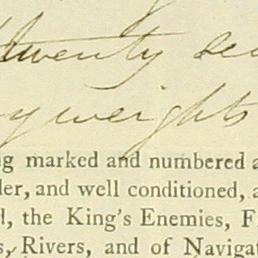 twenty se
yweights
g marked and numbered a
der, and well conditioned, a
d, the King's Enemies, F
s, Rivers, and of Navigat